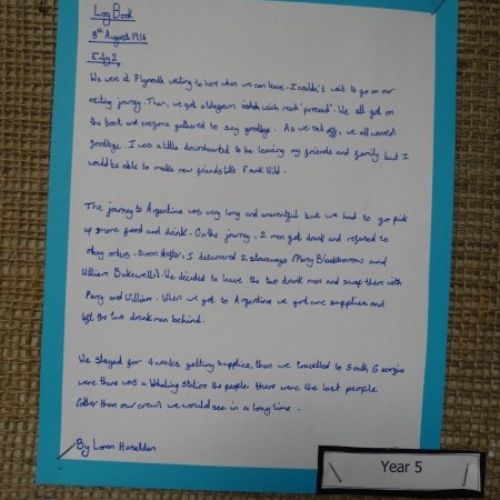 Log Book
8th August 1914
Entry 2
We were at Plymouth waiting to here when we can leave. I couldn't wait to go on our
exiting journey. Then, we got a telegram wich read "proceed". We all got on
the boat and everyone gathered to say goodbye. As we set off, we all waved
goodbye. I was a little downhearted to be leaving my friends and family but I
would be able to make new friends like Frank Wild.
The journey to Argentina was very long and uneventful but we had to go pick
up more food and drink. On the journey, 2 men got drunk and refused to
obey orders. Soon after, I discovered 2 stowaways (Perry Blackborrow and
William Bakewell). We decided to leave the two drunk men and swap them with
Perry and William. When we got to Argentina we got our supplies and
left the two drunk men behind.
We stayed for 4 weeks getting supplies, then we travelled to South Georgia
were there was a Whaling station the people there were the last people
(other than our crew) we would see in a long time.
By Loren Heselden
Year 5